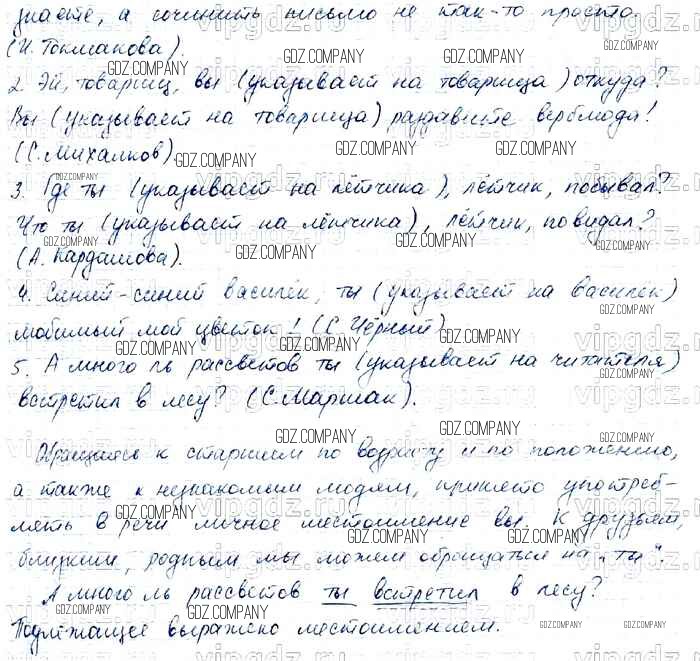 знаете, а сочинить письмо не так-то просто
(И. Токмакова).
2. Эй, товарищ, вы (указывает на товарища) откуда?
Вы (указывает на товарища) раздавите верблюда!
(С. Михалков)
3. Где ты (указывает на лётчика), лётчик, побывал?
Что ты (указывает на лётчика), лётчик, повидал?
(А. Кардашова).
4. Синий-синий василёк, ты (указывает на василек)
любимый мой цветок! (С. Чёрный)
5. А много ль рассветов ты (указывает на читателя)
встретил в лесу? (С. Маршак).
Обращаясь к старшем по возрасту и по положению,
а также к незнакомым людям, принято употреб-
лять в речи личное местоимение вы. К друзьям,
близким, родным мы можем обращаться на „ты".
А много ль рассветов ты встретил в лесу?
Подлежащее выражено местоимением.
GDZ.COMPANY
vipgdz.ru